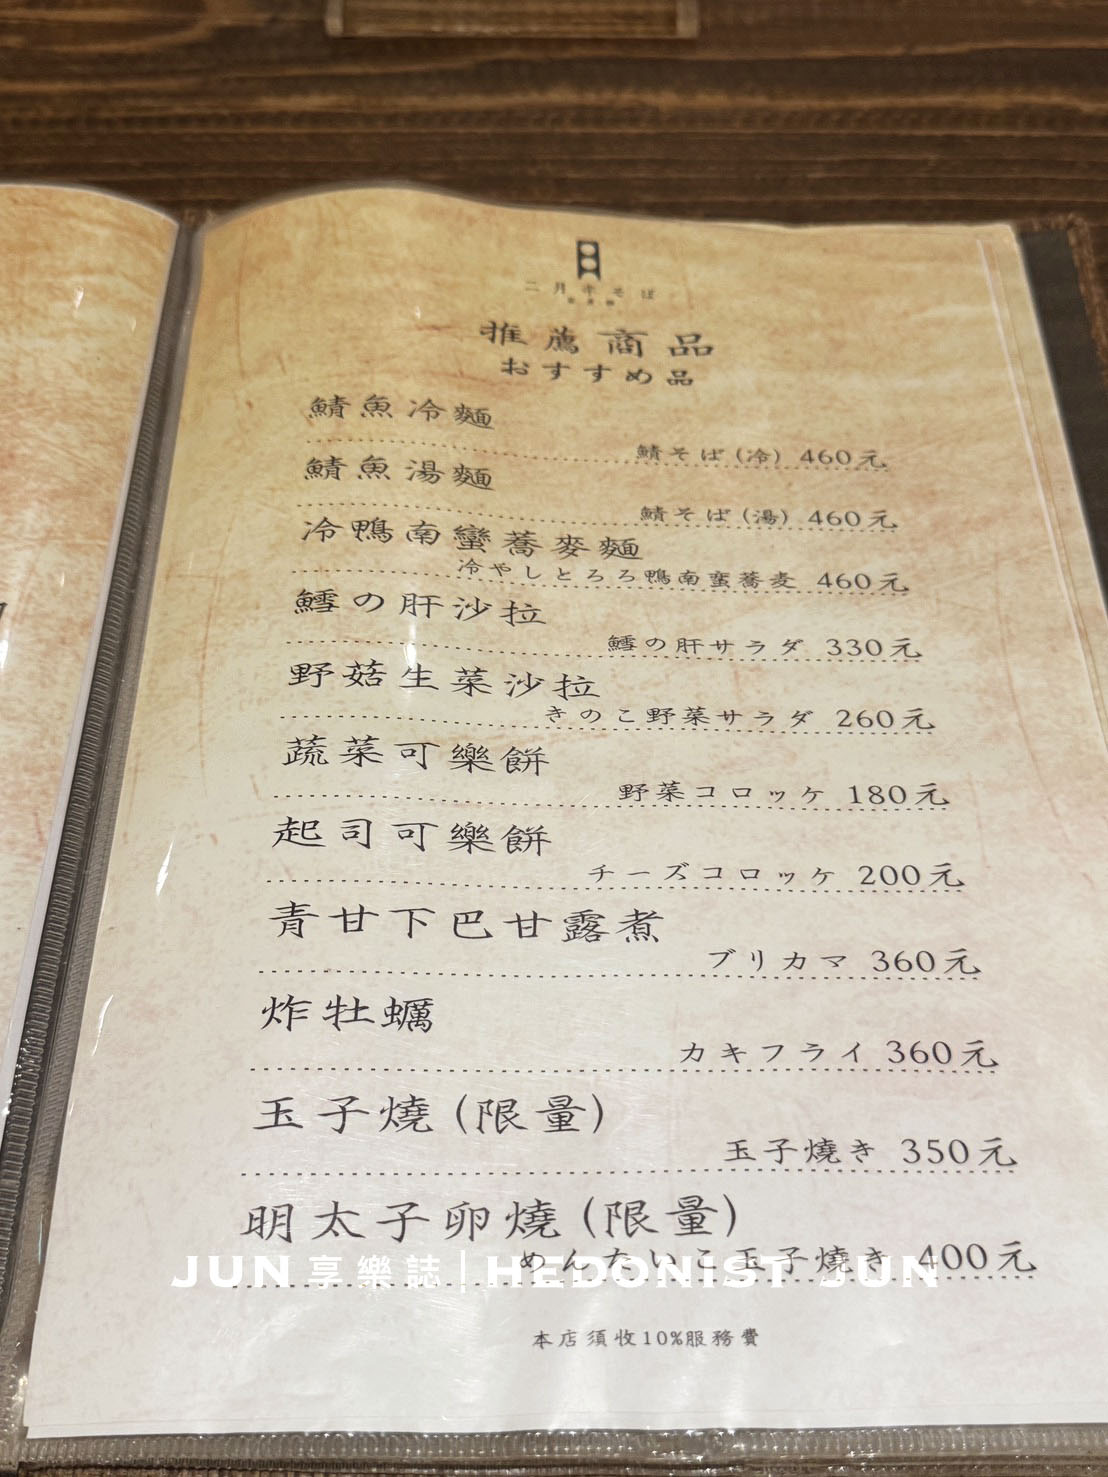 二月半そば
推薦商品
おすすめ品
鯖魚冷麵
鯖そば(冷) 460元
鯖魚湯麵
鯖そば(湯) 460元
冷鴨南蠻蕎麥麵
冷やしとろろ鴨南蛮蕎麦 460元
鱈の肝沙拉
鱈の肝サラダ 330元
野菇生菜沙拉
きのこ野菜サラダ 260元
蔬菜可樂餅
野菜コロッケ 180元
起司可樂餅
チーズコロッケ 200元
青甘下巴甘露煮
ブリカマ 360元
炸牡蠣
カキフライ 360元
玉子燒(限量)
玉子燒き 350元
明太子卵燒(限量)
めんたいこ玉子燒き 400元
JUN享樂誌|HEDONIST JUN
本店須收10%服務費